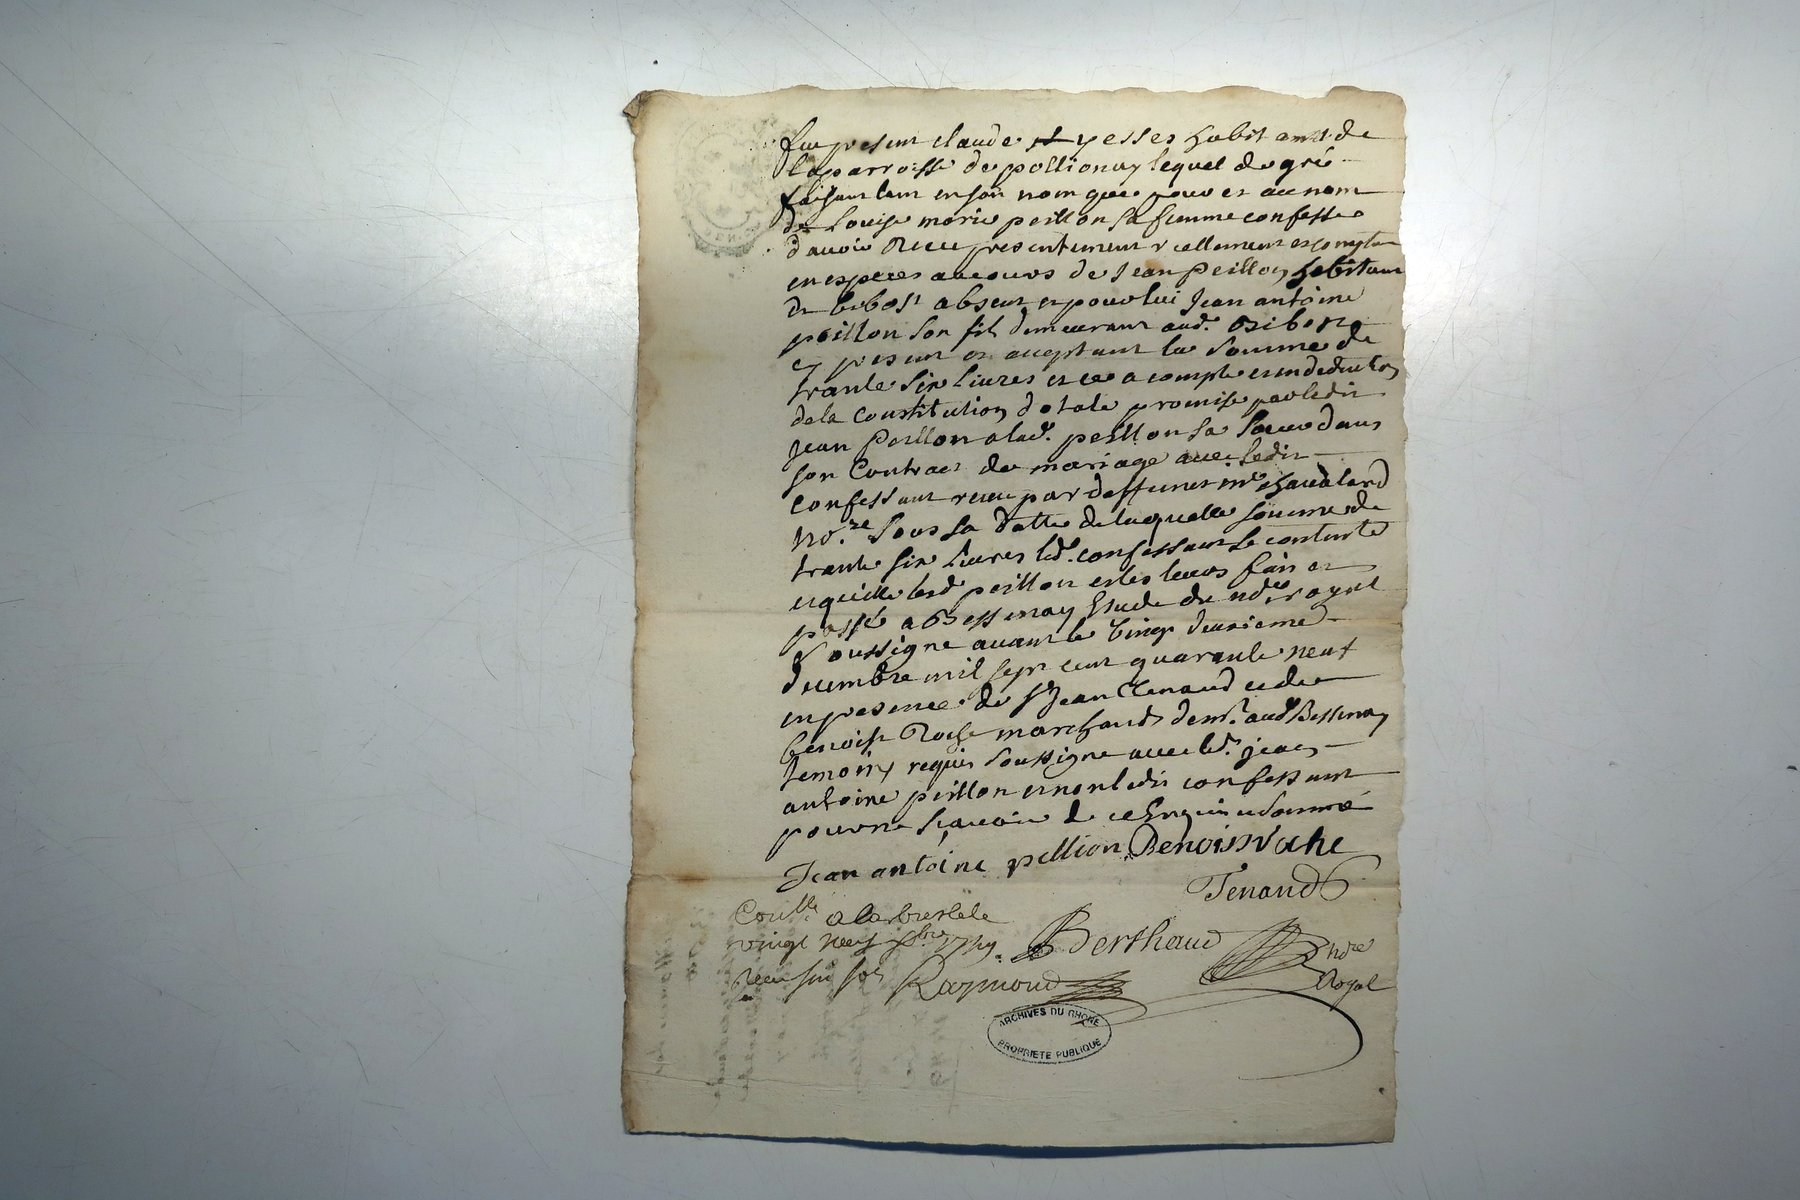 fut present claude yesses habitant de
la parroisse de pollionay lequel de gré
faisant tant en son nom que pour et au nom
de Louise marie peillon sa femme confesse
d'avoir Receu presentement reellement et comptan
en especes au cours de Jean peillon habitant
de bibost absent et pour lui Jean antoine
peillon son fils demeurant aud. Bibost
cy present et acceptant la somme de
trante six livres et ce a compte et en deduction
de la Constitution dotale promise par ledit
Jean Peillon a lad. peillon sa soeur dans
son Contract de mariage avec ledit
confessant receu par deffunct me chavalard
no.re sous sa datte de laquelle somme de
trante six livres led. confessant se contente
et quitte lesd peillon et les leurs fait et
passé a Bessenay Etude du nore royal
soussigne avant le vingt deuxieme
decembre mil sept cent quarante neuf
en presence de sr Jean Thenaud et de
benoist Roche marchands demt. aud Bessenay
temoins requis soussigne avec led. jean
antoine peillon et non ledit confessant
pour ne sçavoir de ce Enquis et sommé
Jean antoine pellion Benoist Rohe
Tenaud
Conlle. a la bresle le
vingt neuf xbre 1749. Berthaud nore
Receu six sols Raymond Royal
ARCHIVES DU RHONE
PROPRIETE PUBLIQUE